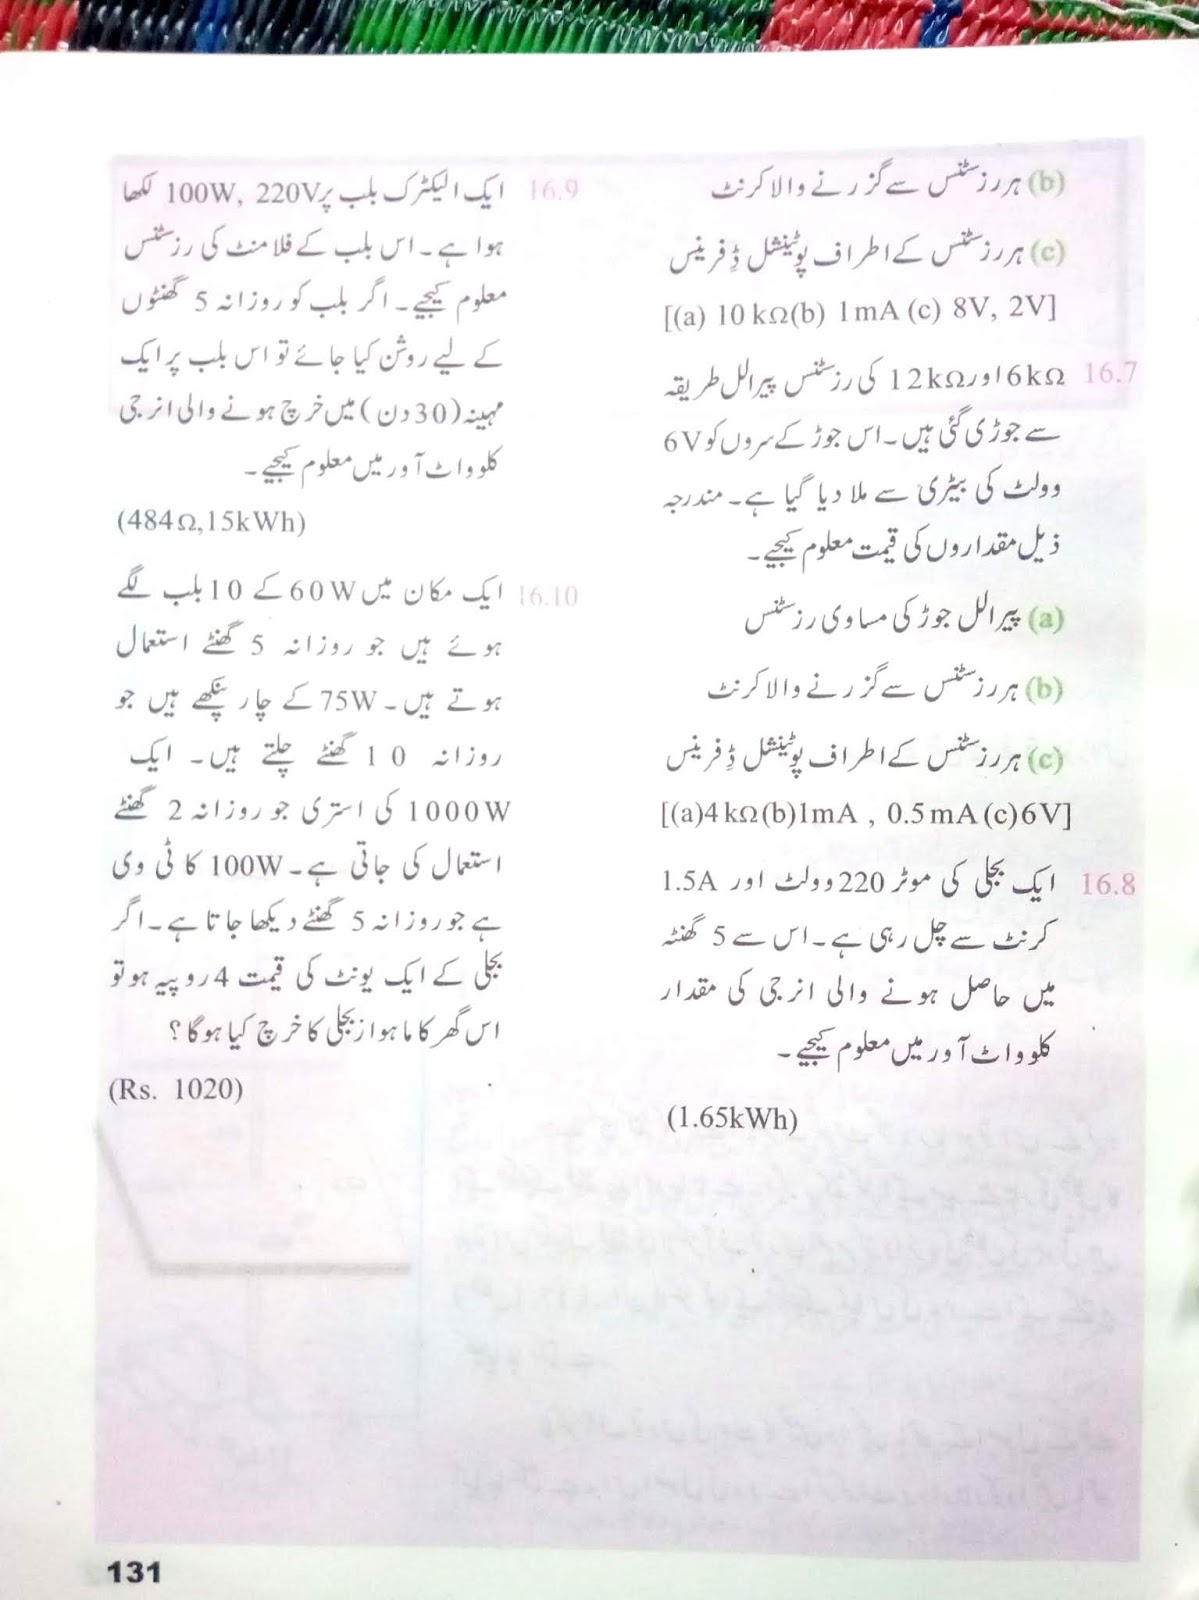 (b) ہر رزسٹنس سے گزرنے والا کرنٹ
(c) ہر رزسٹنس کے اطراف پوٹینشل ڈِفرینس
[(a) 10 kΩ(b) 1mA (c) 8V, 2V]
16.7 6kΩ اور 12kΩ کی رزسٹنس پیرالل طریقہ
سے جوڑی گئی ہیں۔ اس جوڑ کے سروں کو 6V
وولٹ کی بیٹری سے ملا دیا گیا ہے۔ مندرجہ
ذیل مقداروں کی قیمت معلوم کیجیے۔
(a) پیرالل جوڑ کی مساوی رزسٹنس
(b) ہر رزسٹنس سے گزرنے والا کرنٹ
(c) ہر رزسٹنس کے اطراف پوٹینشل ڈِفرینس
[(a)4 kΩ(b)1mA , 0.5 mA (c)6V]
16.8 ایک بجلی کی موٹر 220 وولٹ اور 1.5A
کرنٹ سے چل رہی ہے۔ اس سے 5 گھنٹہ
میں حاصل ہونے والی انرجی کی مقدار
کلوواٹ آور میں معلوم کیجیے۔
(1.65kWh)
16.9 ایک الیکٹرک بلب پر 100W, 220V لکھا
ہوا ہے۔ اس بلب کے فلامنٹ کی رزسٹنس
معلوم کیجیے۔ اگر بلب کو روزانہ 5 گھنٹوں
کے لیے روشن کیا جائے تو اس بلب پر ایک
مہینہ (30 دن) میں خرچ ہونے والی انرجی
کلوواٹ آور میں معلوم کیجیے۔
(484Ω,15kWh)
16.10 ایک مکان میں 60W کے 10 بلب لگے
ہوئے ہیں جو روزانہ 5 گھنٹے استعمال
ہوتے ہیں۔ 75W کے چار پنکھے ہیں جو
روزانہ 10 گھنٹے چلتے ہیں۔ ایک
1000W کی استری جو روزانہ 2 گھنٹے
استعمال کی جاتی ہے۔ 100W کا ٹی وی
ہے جو روزانہ 5 گھنٹے دیکھا جاتا ہے۔ اگر
بجلی کے ایک یونٹ کی قیمت 4 روپیہ ہو تو
اس گھر کا ماہوار بجلی کا خرچ کیا ہوگا؟
(Rs. 1020)
131